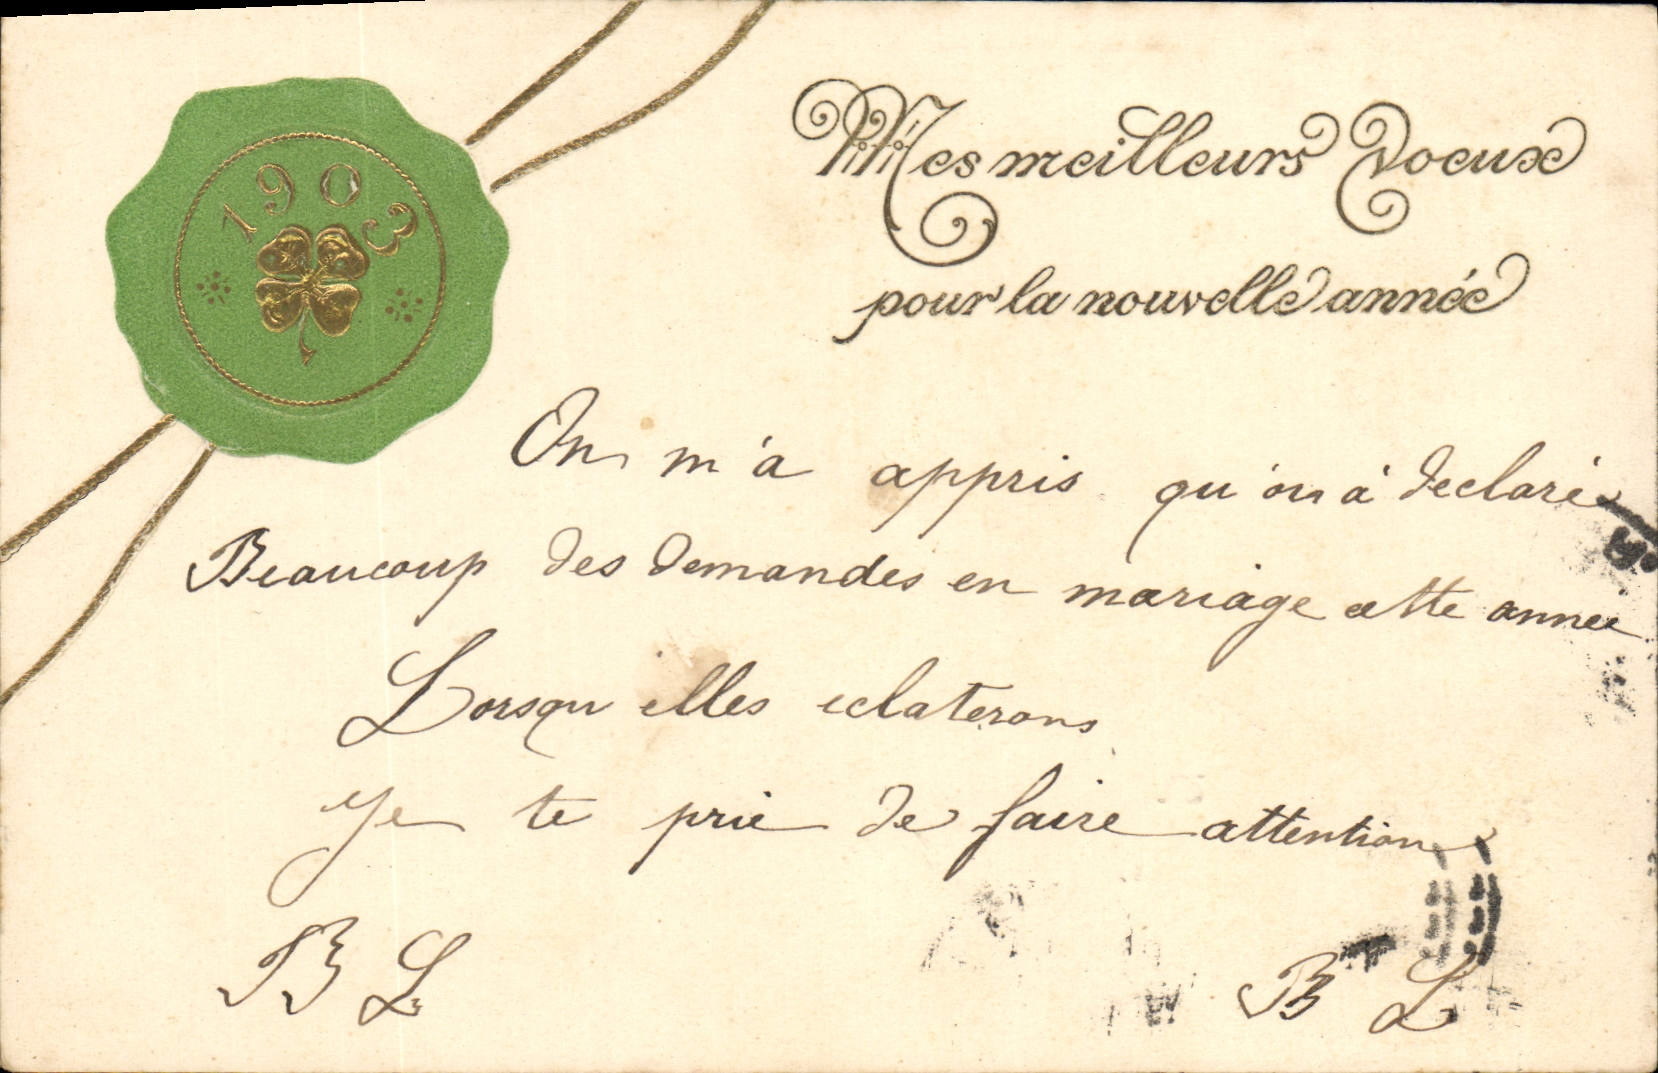 1903
Mes meilleurs voeux
pour la nouvelle année
On m'a appris qu'on à declaré
Beaucoup des demandes en mariage cette année
Lorsqu'elles eclaterons
Je te prie de faire attention
B L
B L